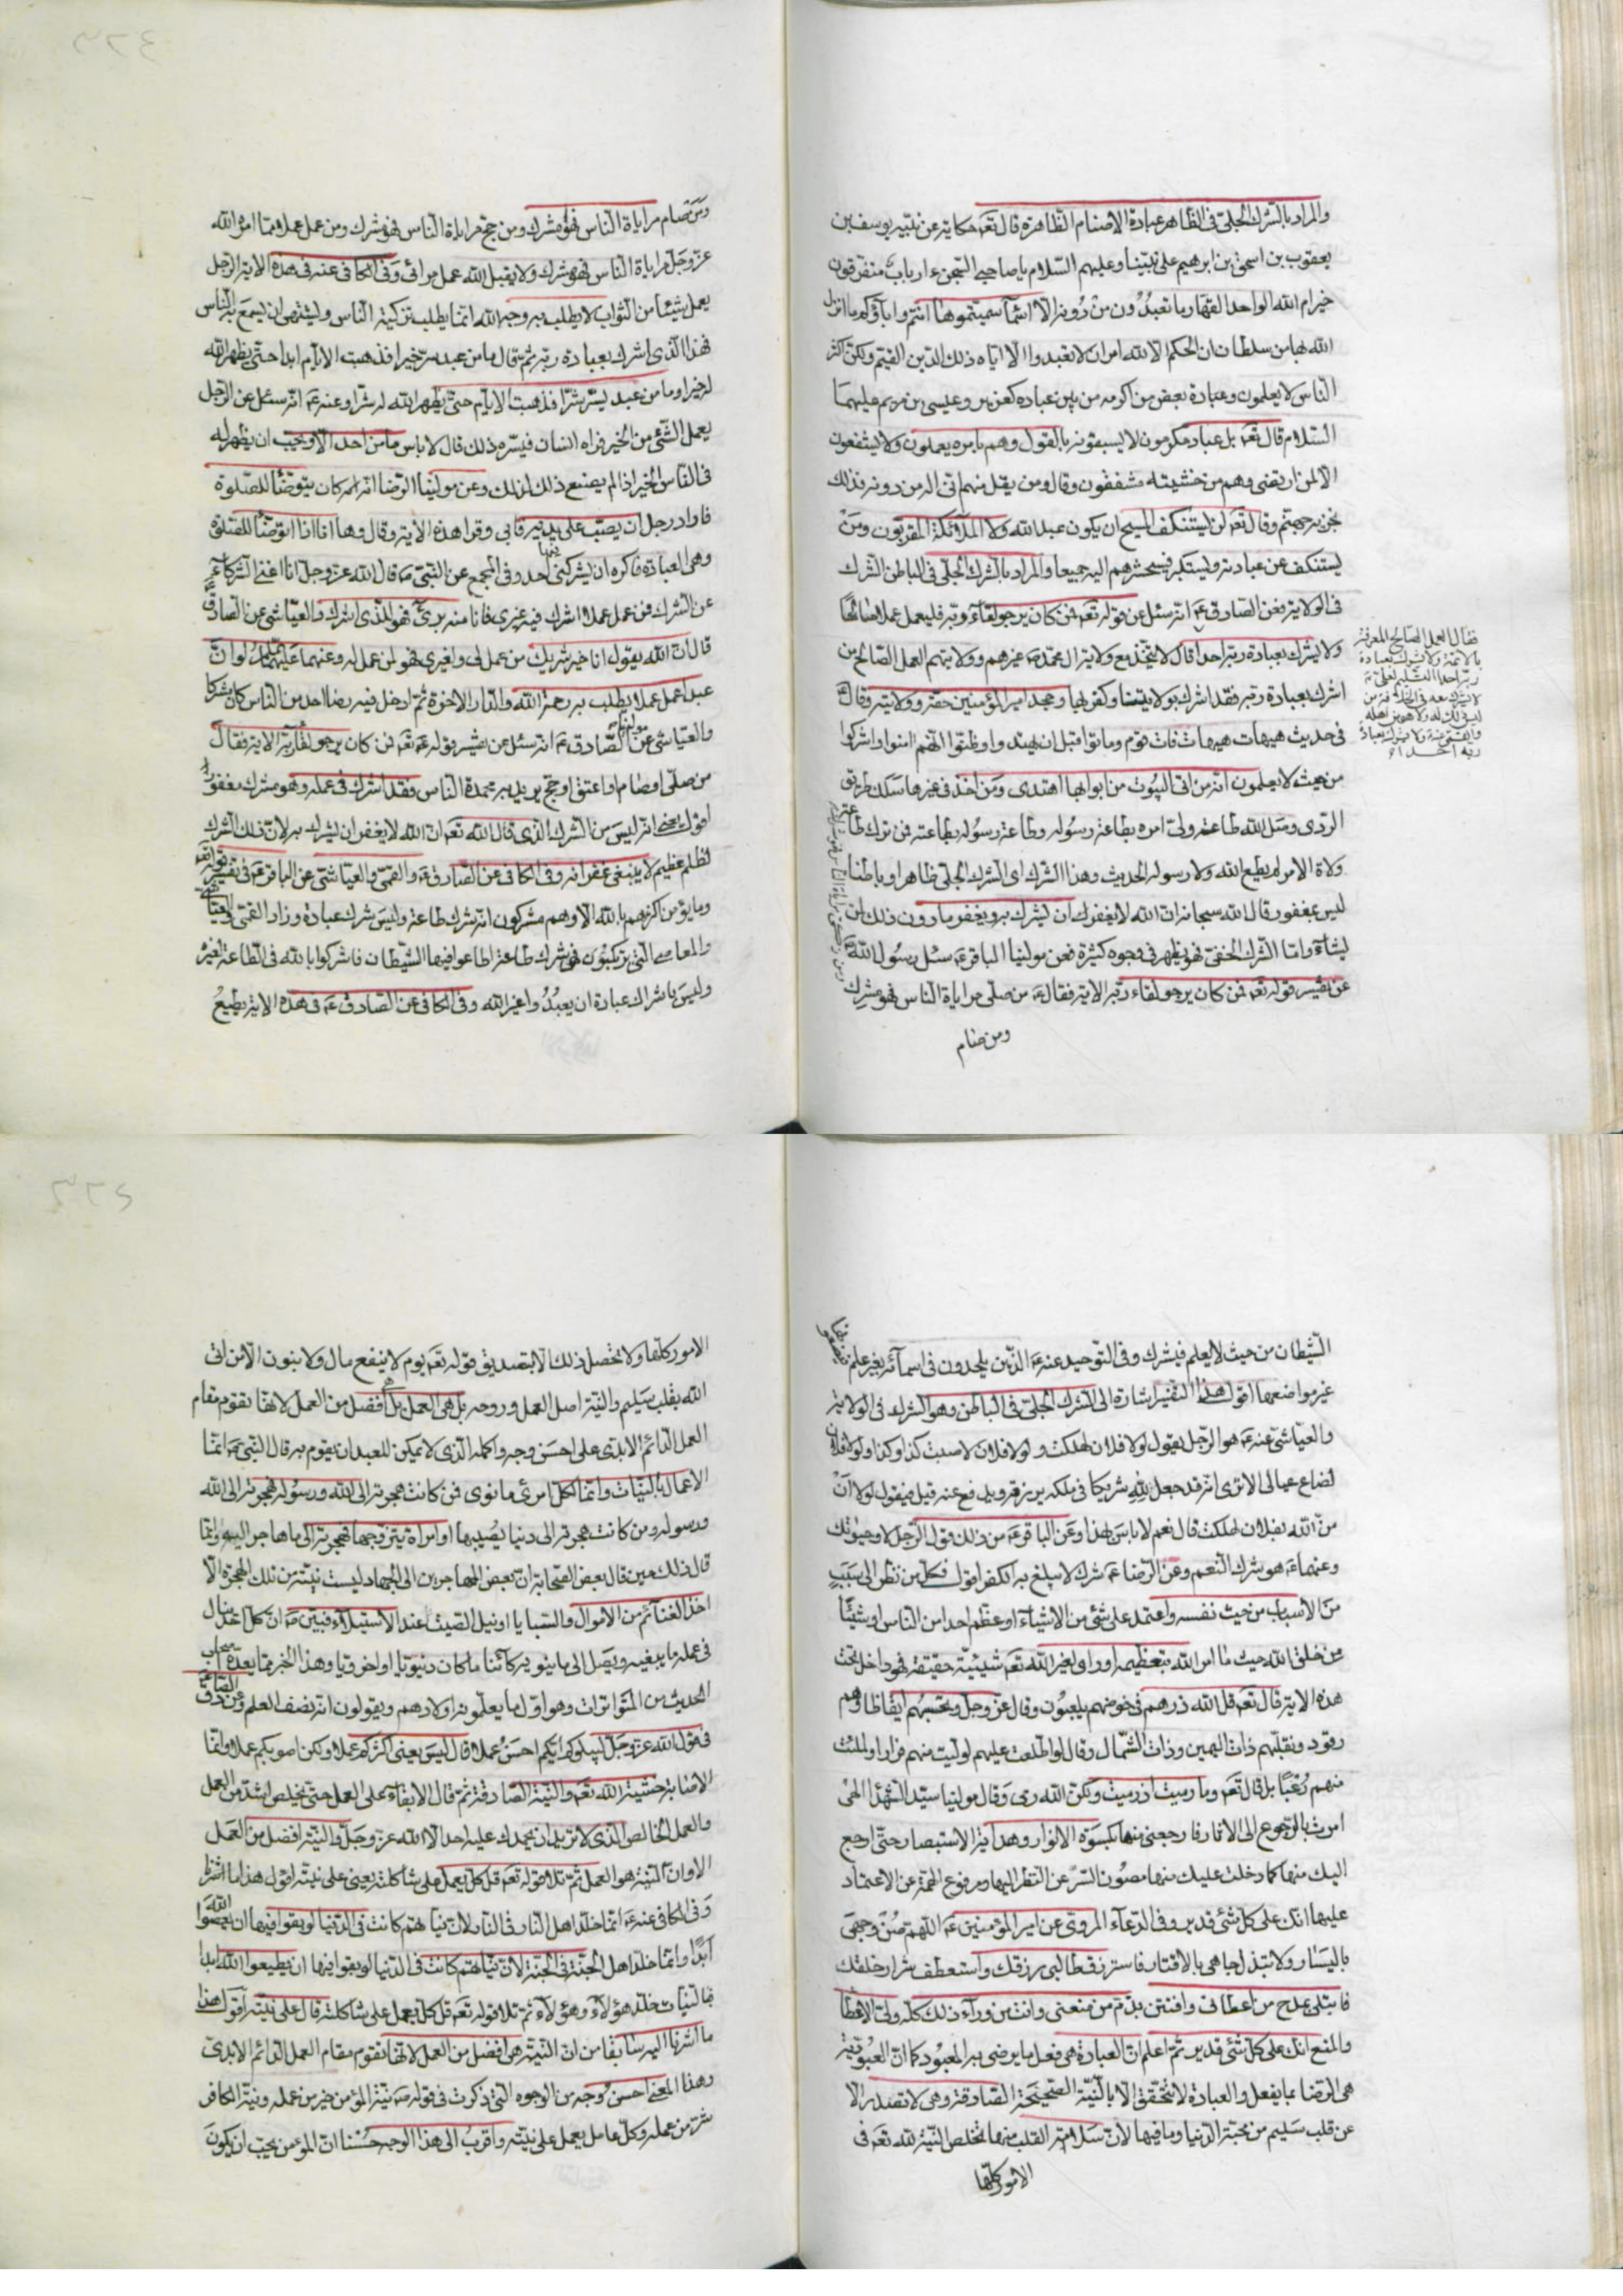 والمراد بالشرك الجلي في الظاهر عبادة الاصنام الظاهرة قال تعہ حكاية عن نبيه يوسف بن
يعقوب بن اسحق بن ابرهيم على نبينا وعليهم السلام يا صاحبي السجن ءارباب متفرقون
خير ام الله الواحد القهار ما تعبدون من دونه الا اسماء سميتموها انتم واباؤكم ما انزل
الله بها من سلطان ان الحكم الا لله امر ان لا تعبدوا الا اياه ذلك الدين القيم ولكن اكثر
الناس لا يعلمون وعبادة بعض من اكرمه من بين عباده كعزير وعيسى بن مريم عليهما
السلام قال تعہ بل عباد مكرمون لا يسبقونه بالقول وهم بامره يعملون ولا يشفعون
الا لمن ارتضى وهم من خشيته مشفقون وقال ومن يقل منهم اني اله من دونه فذلك
نجزيه جهنم وقال تعہ لن يستنكف المسيح ان يكون عبد الله ولا الملائكة المقربون ومن
يستنكف عن عبادته ويستكبر فسيحشرهم اليه جميعا والمراد بالشرك الجلي في الباطن الشرك
في الولاية فعن الصادق عہ انه سئل عن قوله تعہ فمن كان يرجو لقاء ربه فليعمل عملا صالحا
ولا يشرك بعبادة ربه احدا قال لا يتخذ مع ولاية ال محمد عہ غيرهم وولايتهم العمل الصالح من
اشرك بعبادة ربه فقد اشرك بولايتنا وكفر بها وجحد امير المؤمنين حقه وولايته وقال عہ
في حديث هيهات هيهات فات قوم وماتوا قبل ان يهتدوا وظنوا انهم امنوا واشركوا
من حيث لا يعلمون انه من اتى البيوت من ابوابها اهتدى ومن اخذ في غيرها سلك طريق
الردى وصل الله طاعة ولي امره بطاعة رسوله وطاعة رسوله بطاعته فمن ترك طاعة
ولاة الامر لم يطع الله ولا رسوله الحديث وهذا الشرك اي الشرك الجلي ظاهرا وباطنا
ليس بمغفور قال الله سبحانه ان الله لا يغفر ان يشرك به ويغفر ما دون ذلك لمن
يشاء واما الشرك الخفي فهو يظهر في وجوه كثيرة فعن مولينا الباقر عہ سئل رسول الله ص
عن تفسير قوله تعہ فمن كان يرجو لقاء ربه الاية فقال عہ من صلى مراياة الناس فهو مشرك
ومن صام
فقال العمل الصالح المعرفة
بالائمة ولا يشرك بعبادة
ربه احدا التسليم لعلي عہ
لا يشرك معه في الخلافة من
ليس ذلك له ولا هو من اهله
ولا يشرك بعبادة
ربه احدا
ومن زكى مراياة الناس فهو مشرك
ومن صام مراياة الناس فهو مشرك ومن حج مراياة الناس فهو مشرك ومن عمل عملا مما امر الله
عز وجل مراياة الناس فهو مشرك ولا يقبل الله عمل مرائى وفي الكافي عنه في هذه الاية الرجل
يعمل شيئا من الثواب لا يطلب به وجه الله انما يطلب تزكية الناس ويشتهي ان يسمع به الناس
فهذا الذي اشرك بعبادة ربه ثم قال ما من عبد سر خيرا فذهبت الايام ابدا حتى يظهر الله
له خيرا وما من عبد يسر شرا فذهبت الايام حتى يظهر الله له شرا وعنه عہ انه سئل عن الرجل
يعمل الشئ من الخير فراه انسان فيسره ذلك قال لا باس ما من احد الا ويحب ان يظهر له
في الناس الخير اذا لم يصنع ذلك لذلك وعن مولينا الرضا انه كان يتوضأ للصلوة
فاراد رجل ان يصب على يديه فابى وقرا هذه الاية وقال وها انا اتوضأ للصلوة
وهي العبادة فاكره ان يشركني فيها احد وفي المجمع عن النبي ص قال الله عز وجل انا اغنى الشركاء
عن الشرك فمن عمل عملا اشرك فيه غيري فانا منه بريء فهو للذي اشرك والعياشي عن الصادق عہ
قال ان الله يقول انا خير شريك من عمل لي ولغيري فهو لمن عمل له وعنهما عليهما السلام لو ان
عبدا عمل عملا يطلب به رحمة الله والدار الاخرة ثم ادخل فيه رضا احد من الناس كان مشركا
والعياشي عن مولينا الصادق عہ انه سئل عن تفسير قوله تعہ فمن كان يرجو لقاء ربه الاية فقال
من صلى او صام او اعتق او حج يريد به محمدة الناس فقد اشرك في عمله وهو مشرك مغفور
اقول يعني انه ليس من الشرك الذي قال الله تعہ ان الله لا يغفر ان يشرك به لان ذلك الشرك
لظلم عظيم لا ينبغي غفرانه وفي الكافي عن الصادق عہ والقمي والعياشي عن الباقر عہ في تفسير قوله تعہ
وما يؤمن اكثرهم بالله الا وهم مشركون انه شرك طاعة وليس شرك عبادة وزاد القمي والعياشي
والمعاصي التي يرتكبون فهي شرك طاعة اطاعوا فيها الشيطان فاشركوا بالله في الطاعة لغيره
وليس باشراك عبادة ان يعبدوا غير الله وفي الكافي عن الصادق عہ في هذه الاية يطيع
الشيطان من حيث لا يعلم فيشرك وفي التوحيد عنه عہ الذين يلحدون في اسمائه بغير علم فيضعونها
غير مواضعها اقول هذا التفسير اشارة الى الشرك الجلي في الباطن وهو الشرك في الولاية
والعياشي عنه عہ هو الرجل يقول لولا فلان لهلكت ولولا فلان لاصبت كذا وكذا ولولا فلان
لضاع عيالي الا ترى انه قد جعل لله شريكا في ملكه يرزقه ويدفع عنه قيل فيقول لولا ان
من الله بفلان لهلكت قال نعم لا باس بهذا وعن الباقر عہ من ذلك قول الرجل لا وحيوتك
وعنهما عہ هو شرك النعم وعن الرضا عہ شرك لا يبلغ به الكفر اقول فكل من نظر الى سبب
من الاسباب من حيث نفسه واعتمد على شئ من الاشياء او عظم احدا من الناس او شيئا
من خلق الله حيث ما امر الله بتعظيمه او راى لغير الله تعہ شيئية حقيقة فهو داخل تحت
هذه الاية قال تعہ قل الله ذرهم في خوضهم يلعبون وقال عز وجل وتحسبهم ايقاظا وهم
رقود ونقلبهم ذات اليمين وذات الشمال وقال لو اطلعت عليهم لوليت منهم فرارا ولملئت
منهم رعبا بل قال تعہ وما رميت اذ رميت ولكن الله رمى وقال مولينا سيد الشهداء الهي
امرت بالرجوع الى الاثار فارجعني منها بكسوة الانوار وهداية الاستبصار حتى ارجع
اليك منها كما دخلت عليك منها مصون السر عن النظر اليها ومرفوع الهمة عن الاعتماد
عليها انك على كل شئ قدير وفي الدعاء المروي عن امير المؤمنين عہ اللهم صن وجهي
باليسار ولا تبذل جاهي بالاقتار فاسترزق طالبي رزقك واستعطف شرار خلقك
فابتلى بمدح من اعطاني وافتتن بذم من منعني وانت من وراء ذلك كله ولي الاعطاء
والمنع انك على كل شئ قدير ثم اعلم ان العبادة هي فعل ما يرضى به المعبود كما ان العبودية
هي الرضا بما يفعل والعبادة لا تتحقق الا بالنية الصحيحة الصادقة وهي لا تصدر الا
عن قلب سليم من محبة الدنيا وما فيها لان سلامة القلب منها تخلص النية لله تعہ في
الامور كلها
الامور كلها ولا تحصل ذلك الا بتصديق قوله تعہ يوم لا ينفع مال ولا بنون الا من اتى
الله بقلب سليم والنية اصل العمل وروحه بل هي العمل بل هي افضل من العمل لانها تقوم مقام
العمل الدائم الابدي على احسن وجه واكمله الذي لا يمكن للعبد ان يقوم به قال النبي ص انما
الاعمال بالنيات وانما لكل امرئ ما نوى فمن كانت هجرته الى الله ورسوله فهجرته الى الله
ورسوله ومن كانت هجرته الى دنيا يصيبها او امراة يتزوجها فهجرته الى ما هاجر اليه وانما
قال ذلك حين قال بعض الصحابة ان بعض المهاجرين الى الجهاد ليست نيته من تلك الهجرة الا
اخذ الغنائم من الاموال والسبايا او نيل الصيت عند الاستيلاء فبين ص ان كل احد ينال
في عمله ما يبغيه ويصل الى ما ينويه كائنا ما كان دنيويا او اخرويا وهذا الخبر مما يعده اصحاب
الحديث من المتواترات وهو اول ما يعلمونه اولادهم ويقولون انه نصف العلم وعن الصادق عہ
في قول الله عز وجل ليبلوكم ايكم احسن عملا قال ليس يعني اكثركم عملا ولكن اصوبكم عملا وانما
الاصابة خشية الله تعہ والنية الصادقة ثم قال الابقاء على العمل حتى يخلص اشد من العمل
والعمل الخالص الذي لا تريد ان يحمدك عليه احد الا الله عز وجل والنية افضل من العمل
الا وان النية هو العمل ثم تلا قوله تعہ قل كل يعمل على شاكلته يعني على نيته اقول هذا ما اشرنا
وفي الكافي عنه عہ انما خلد اهل النار في النار لان نياتهم كانت في الدنيا لو بقوا فيها ان يعصوا الله
ابدا وانما خلد اهل الجنة في الجنة لان نياتهم كانت في الدنيا لو بقوا فيها ان يطيعوا الله ابدا
فبالنيات خلد هؤلاء وهؤلاء ثم تلا قوله تعہ قل كل يعمل على شاكلته قال على نيته اقول هذا
ما اشرنا اليه سابقا من ان النية هي افضل من العمل لانها تقوم مقام العمل الدائم الابدي
وهذا المعنى احسن وجه من الوجوه التي ذكرت في قوله ص نية المؤمن خير من عمله ونية الكافر
شر من عمله وكل عامل يعمل على نيته واقرب الى هذا الوجه حسنا ان المؤمن يجب ان يكون